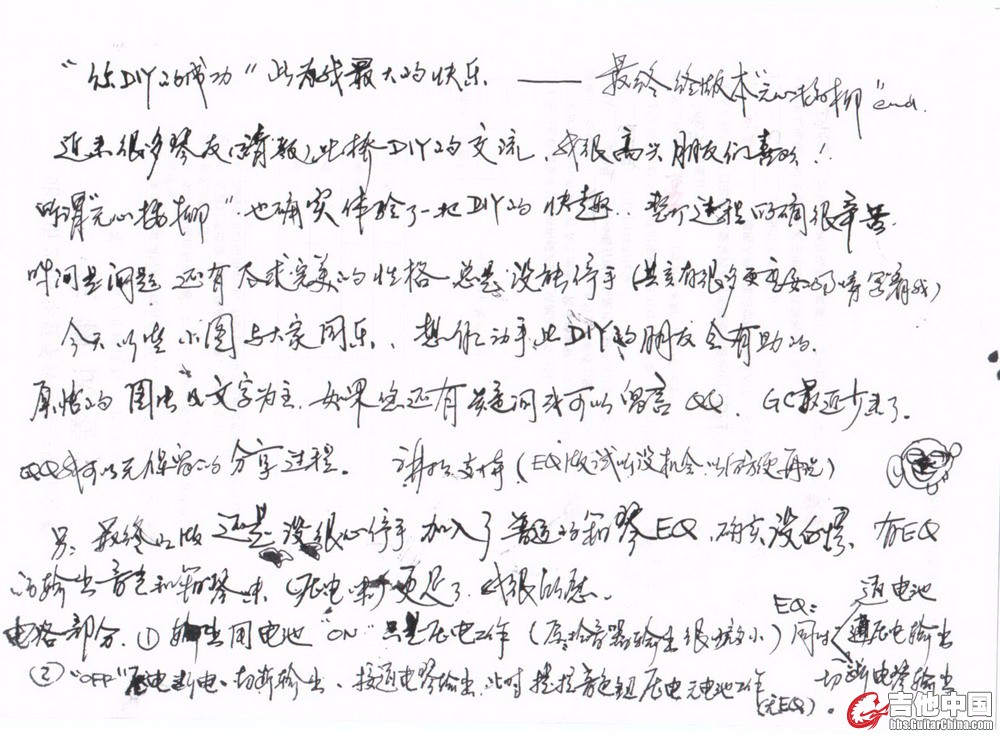 "DIY的成功"此为我最大的快乐 —— 最终终版本"无心插柳"end.
近来很多琴友请教此桥DIY的交流、我很高兴朋友们喜欢!
所谓"无心插柳"也确实体验了一把DIY的快趣..整个过程的确很辛苦.
时间是问题 还有太求完美的性格 总是没能停手(其言有很多更好的
今天以些小图与大家同乐、想你动手此DIY的朋友会有助的.
原帖的图片及文字为主.如果您还有关疑问我可以留言QQ、GC最近少来了.
QQ我可以无保留的分享过程. 谢谢支持(EQ版试以没机会以后方便再说)
另:最终的版还是没很心停手加入了普通的箱琴EQ、确实没白累、有EQ
的输出音色和箱琴味(压电味)更足了.我很的慰.
电路部分.①输出用电池"ON"只是压电工作(原拾音器输出很小)同时 EQ: 通电池 通压电输出 切断电琴输出
②"OFF"压电断电、切断输出、接通电琴输出.此时 音色钮压电无电池工作(无EQ).
吉他中国
bbs.GuitarChina.com